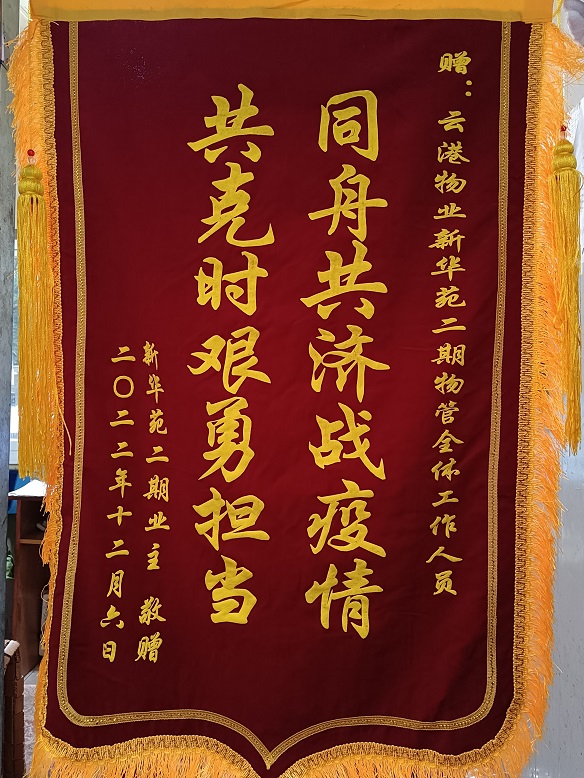 赠：云港物业新华苑二期物管全体工作人员
同舟共济战疫情
共克时艰勇担当
新华苑二期业主 敬赠
二〇二二年十二月六日